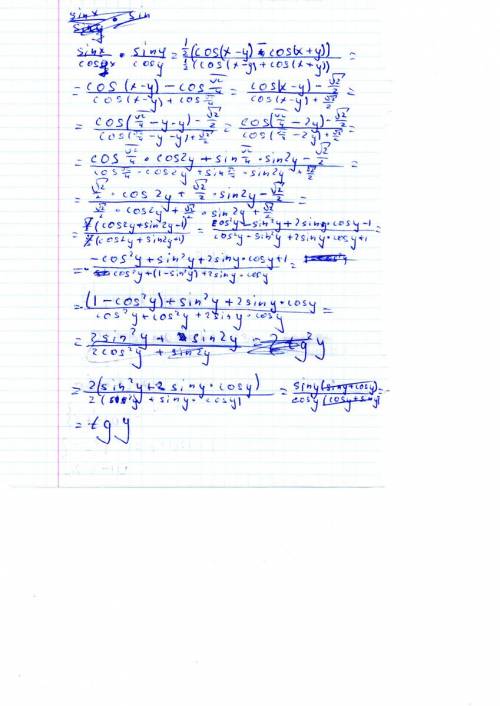 sinx/siny · sin
sinx/cosx · siny/cosy = ½(cos(x-y) - cos(x+y)) / ½(cos(x-y) + cos(x+y)) =
= cos(x-y) - cos √2/4 / cos(x-y) + cos π/4 = cos(x-y) - √2/2 / cos(x-y) + √2/2 =
= cos(√2/4 - y - y) - √2/2 / cos(π/4 - y - y) + √2/2 = cos(√2/4 - 2y) - √2/2 / cos(π/4 - 2y) + √2/2 =
= cos √2/4 · cos2y + sin √2/4 · sin2y - √2/2 / cos π/4 · cos2y + sin π/4 · sin2y + √2/2 =
= √2/2 · cos2y + √2/2 · sin2y - √2/2 / √2/2 · cos2y + √2/2 · sin2y + √2/2 =
= (cos2y + sin2y - 1) / (cos2y + sin2y + 1) = cos²y - sin²y + 2siny · cosy - 1 / cos²y - sin²y + 2siny · cosy + 1 =
= -cos²y + sin²y + 2siny · cosy + 1 / cos²y + (1 - sin²y) + 2siny · cosy =
= (1 - cos²y) + sin²y + 2siny · cosy / cos²y + cos²y + 2siny · cosy =
= 2sin²y + sin2y / 2cos²y + sin2y = 2tg²y
= 2(sin²y + 2 siny · cosy) / 2(cos²y + siny · cosy) = siny(siny + cosy) / cosy(cosy + siny) =
= tg y